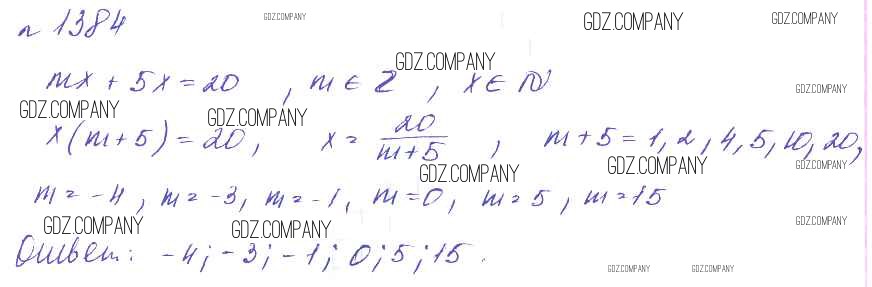 № 1384
GDZ.COMPANY GDZ.COMPANY GDZ.COMPANY
mx + 5x = 20 , m ∈ Z , x ∈ N
GDZ.COMPANY GDZ.COMPANY
GDZ.COMPANY GDZ.COMPANY
x(m+5) = 20, x = 20/(m+5) , m+5 = 1, 2, 4, 5, 10, 20,
GDZ.COMPANY GDZ.COMPANY GDZ.COMPANY
m = -4, m = -3, m = -1, m = 0, m = 5, m = 15
GDZ.COMPANY GDZ.COMPANY GDZ.COMPANY
Ответ: -4; -3; -1; 0; 5; 15.
GDZ.COMPANY GDZ.COMPANY